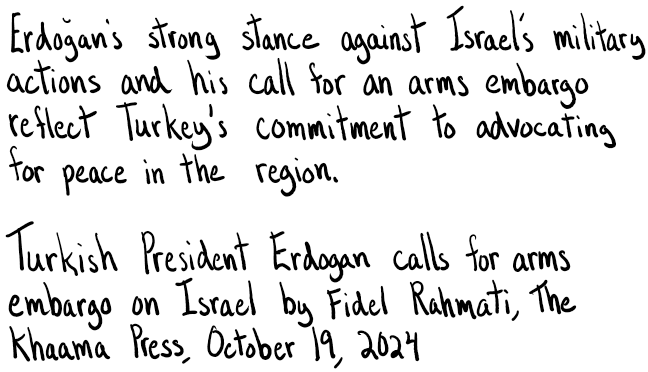 Erdoğan's strong stance against Israel's military
actions and his call for an arms embargo
reflect Turkey's commitment to advocating
for peace in the region.
Turkish President Erdogan calls for arms
embargo on Israel by Fidel Rahmati, The
Khaama Press, October 19, 2024